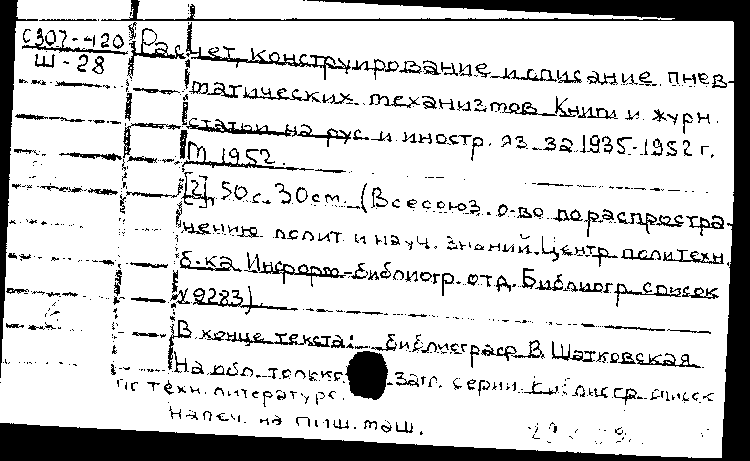 С307-420 Расчет, конструирование и списание пнев-
Ш-28
матических механизмов. Книги и журн.
статьи на рус. и иностр. яз. за 1935-1952 г.
М, 1952.
[2], 50с. 30см. (Всесоюз. о-во по распростра-
нению полит и науч. знаний. Центр политехн.
б-ка Информ-библиогр. отд. Библиогр. список
№9283).
В конце текста: библиограф В. Шатковская
На обл. только загл. серии. Библиогр. список
техн. литературе.
Напеч. на пиш. маш.